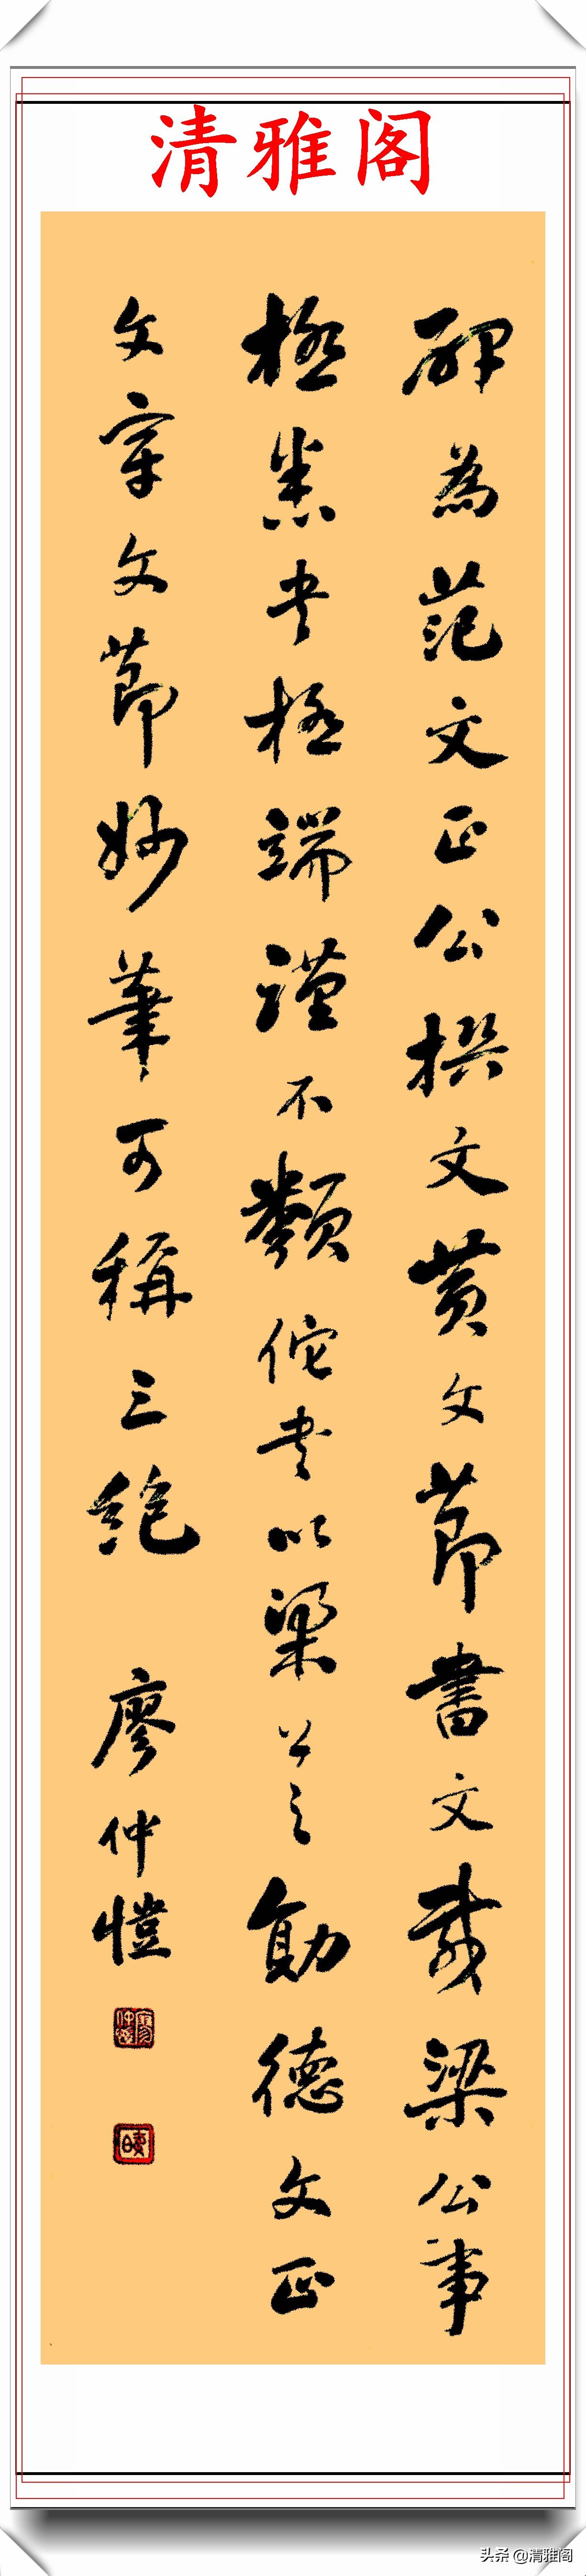 清雅阁
碑為范文正公撰文黄文節書文載梁公事
極悉書極端謹不類佗書以梁公之勛德文正
文章文節妙筆可稱三絕
廖仲愷
头条 @清雅阁